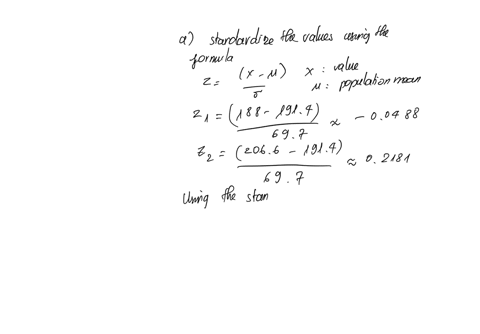 a) standardize the values using the
formula
z = (x - μ) / σ x : value
μ : population mean
z1 = (188 - 191.4) / 69.7 ≈ -0.0488
z2 = (206.6 - 191.4) / 69.7 ≈ 0.2181
Using the stan